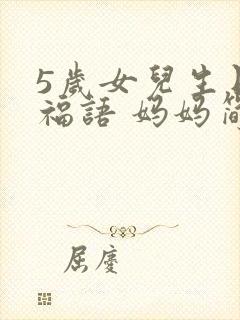 5歲女兒生
福語 妈妈簡
屈慶